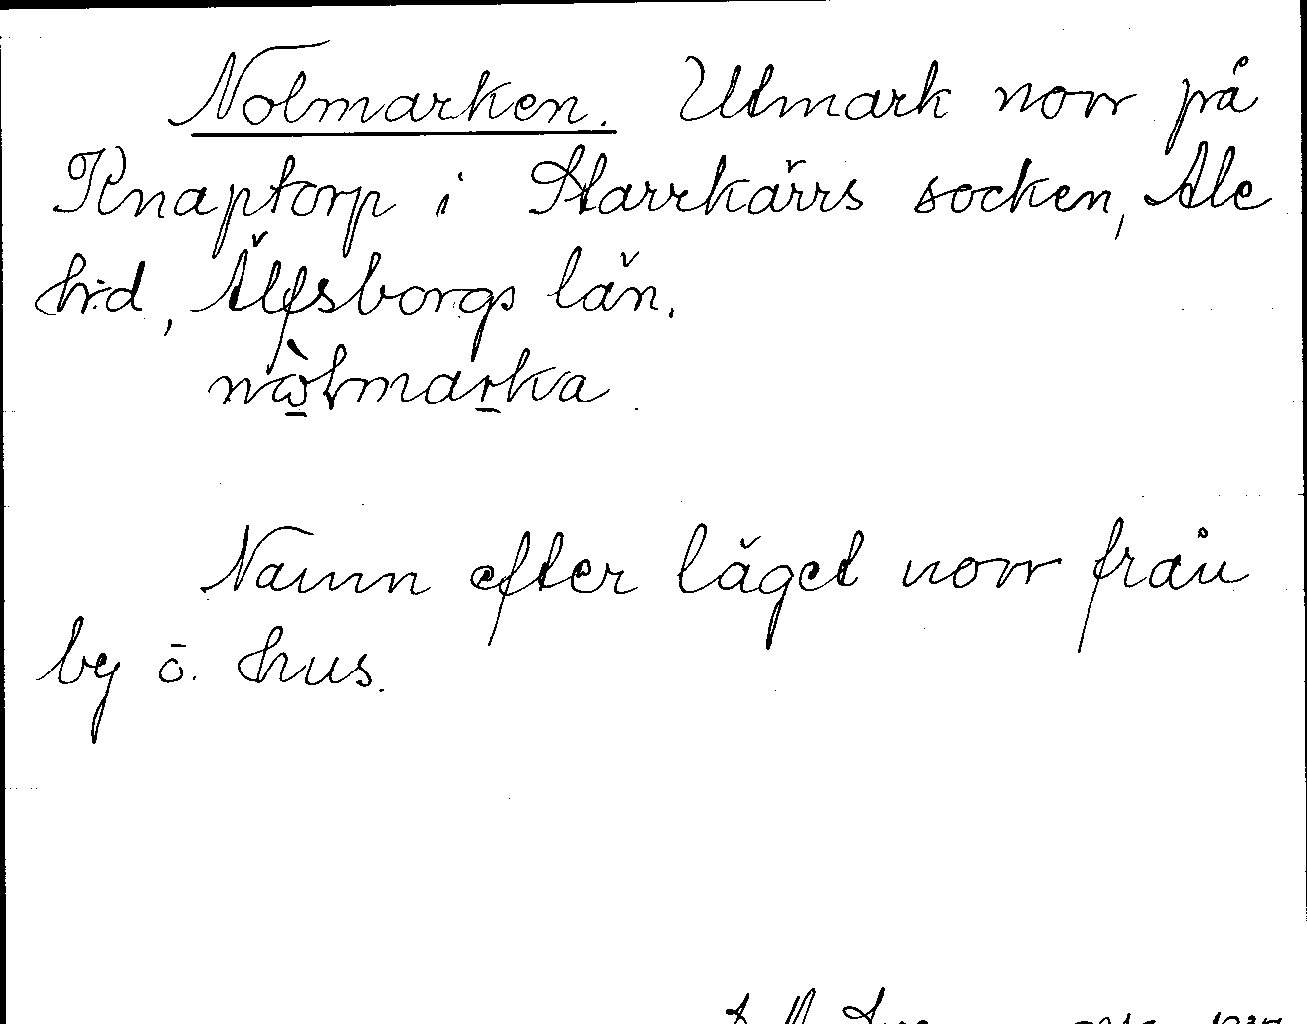 Nolmarken. Utmark norr på
Knaptorp i Starrkärrs socken, Ale
hrd, Älfsborgs län.
nὼ̱lmaṟka
Namn efter läget norr från
by o. hus.